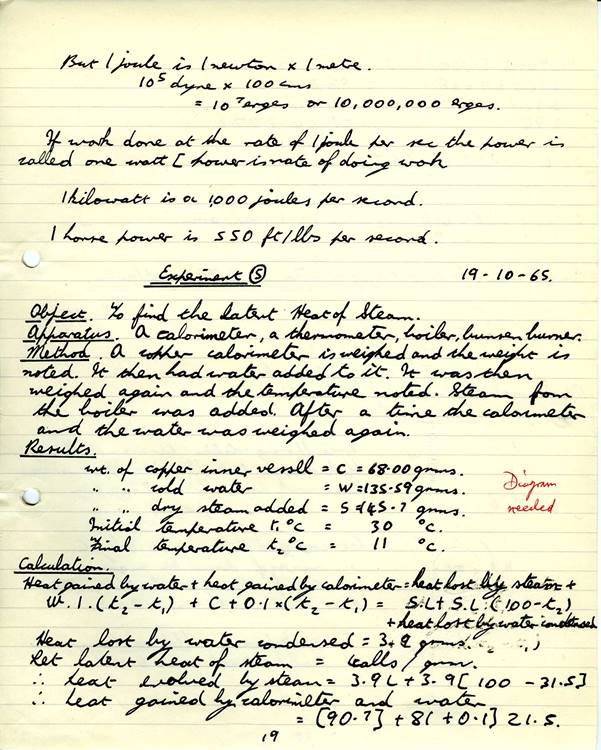 But 1 joule is 1 newton x 1 metre.
10⁵ dyne x 100 cms
= 10⁷ erges or 10,000,000 erges.
If work done at the rate of 1 joule per sec the power is
called one watt [ power is rate of doing work
1 kilowatt is a 1,000 joules per second.
1 horse power is 550 ft/lbs per second.
Experiment ⑤ 19-10-65.
Object. To find the Latent Heat of Steam.
Apparatus. A calorimeter, a thermometer, boiler, bunsen burner.
Method. A copper calorimeter is weighed and the weight is
noted. It then had water added to it. It was then
weighed again and the temperature noted. Steam from
the boiler was added. After a time the calorimeter
and the water was weighed again.
Results.
wt. of copper inner vessel = C = 68.00 grms.
" " cold water = W = 135.59 grms.
" " dry steam added = S = 145.7 grms.
Diagram
needed
Initial temperature t₁°C = 30 °C.
Final temperature t₂°C = 11 °C.
Calculation.
Heat gained by water + heat gained by calorimeter = heat lost by steam +
W.1.(t₂-t₁) + C + 0.1 x (t₂-t₁) = S.L + S.L.(100-t₂)
+ heat lost by water condensed
Heat lost by water condensed = grms.
Let latent heat of steam = L calls / grm.
∴ heat evolved by steam = 3.9L + 3.9[100 - 31.5]
∴ heat gained by calorimeter and water
= [90.7] + 81 + 0.1] 21.5.
19